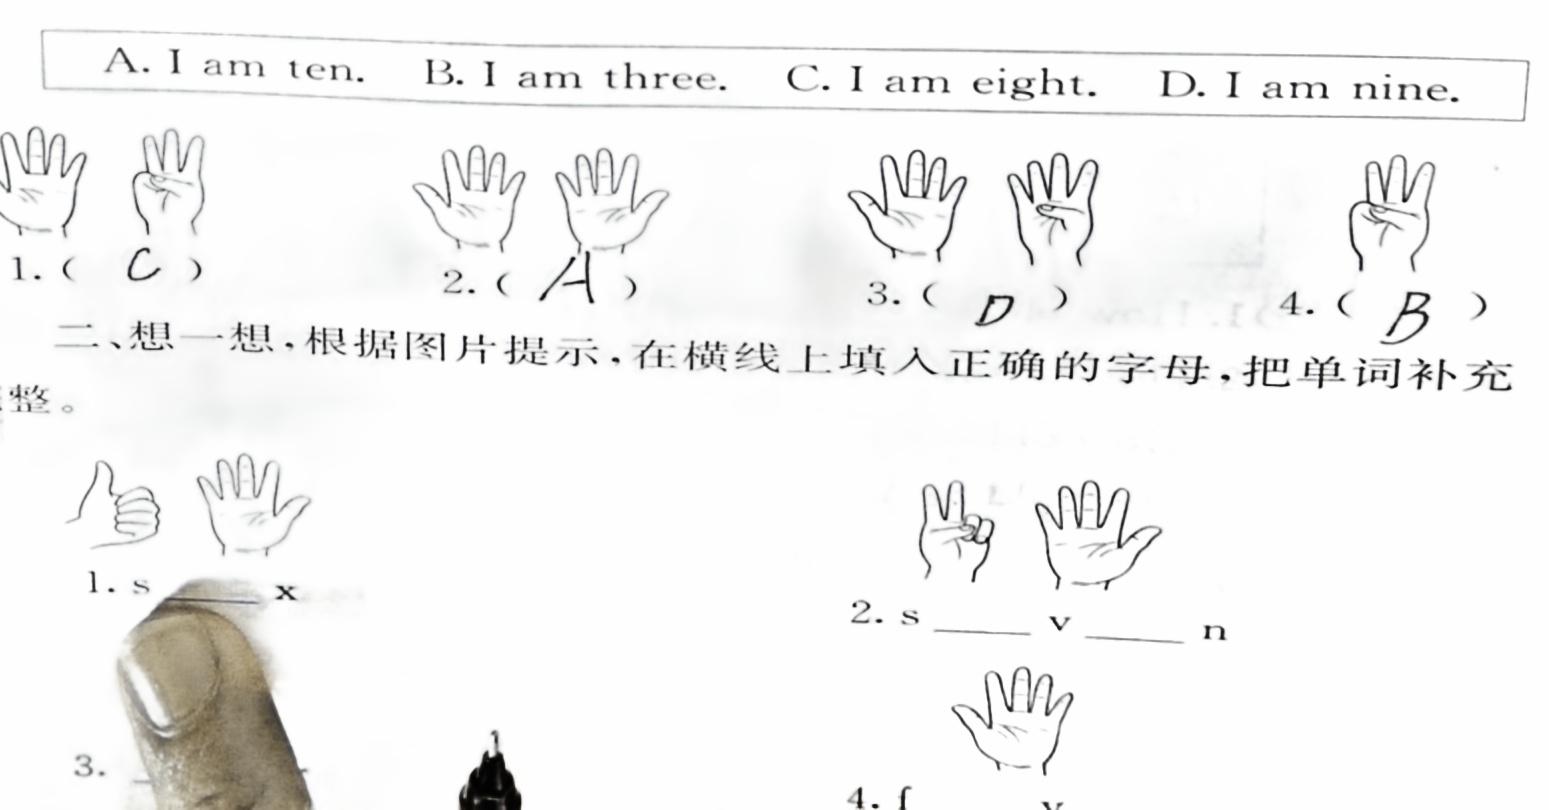 A. I am ten. B. I am three. C. I am eight. D. I am nine.
1. ( C ) 2. ( A ) 3. ( D ) 4. ( B )
二、想一想,根据图片提示,在横线上填入正确的字母,把单词补充
整。
1. s ____ x 2. s ____ v ____ n
3. 4. f ____ v